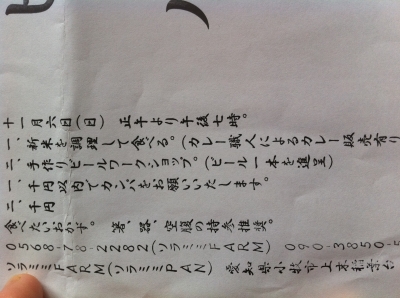 十一月六日(日)　正午より午後七時。
一、新米を調理して食べる。(カレー職人によるカレー販売有り
二、手作りビールワークショップ。(ビール一本を進呈)
一、千円以内でカンパをお願いいたします。
二、千円
食べたいおかず。　箸、器、空腹の持参推奨。
0568-78-2282(ソラミミFARM)　090-3850-5
ソラミミFARM(ソラミミPAN)　愛知県小牧市上末稲葉台